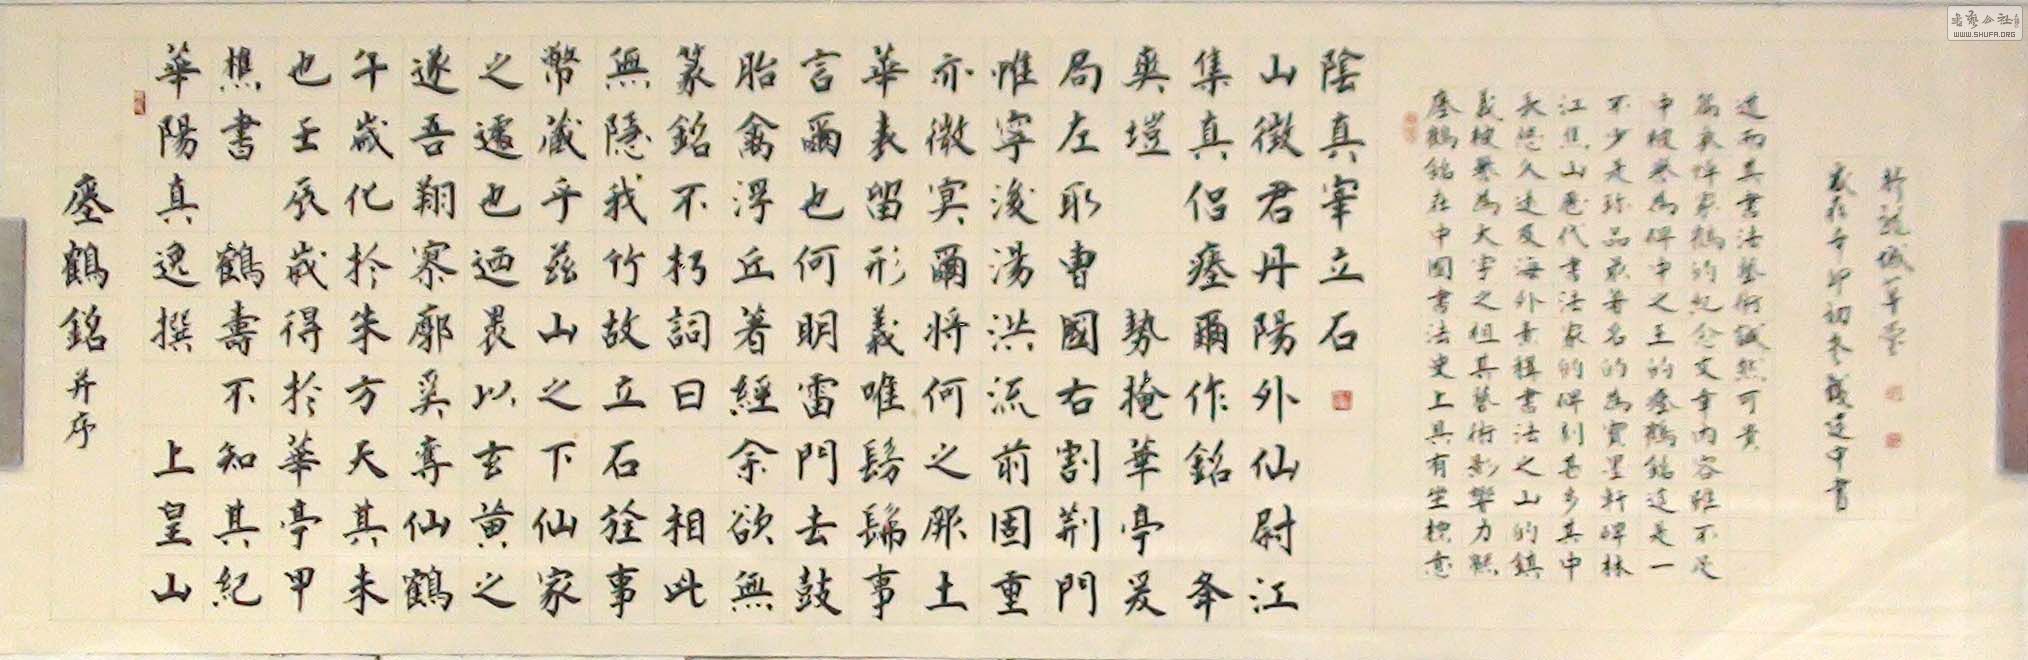 瘞鶴銘并序
華陽真逸撰 上皇山
樵書 鶴壽不知其紀
也壬辰歲得於華亭甲
午歲化於朱方天其未
遂吾翔寥廓奚奪仙鶴
之遽也迺裹以玄黃之
幣藏乎茲山之下仙家
無隱我竹故立石旌事
篆銘不朽詞曰 相此
胎禽浮丘著經余欲無
言爾也何明雷門去鼓
華表留形義唯髣髴事
亦微冥爾將何之厥土
惟寧後湯洪流前固重
局左取曹國右割荊門
爽塏 勢掩華亭爰
集真侶瘞爾作銘 夅
山徵君丹陽外仙尉江
陰真宰立石
瘞鶴銘在中國書法史上具有坐標意
義被譽為大字之祖其藝術影響力
長久遠及海外素稱書法之山的鎮
江焦山歷代書法家的碑刻甚多其中
不少是珍品最著名的為寶墨軒碑林
中被譽為碑中之王的瘞鶴銘這是一
篇哀悼家鶴的紀念文章內容雖不足
道而其書法藝術誠然可貴
歲在辛卯初冬戴廷中書
於龍城一草堂
书艺公社
WWW.SHUFA.ORG